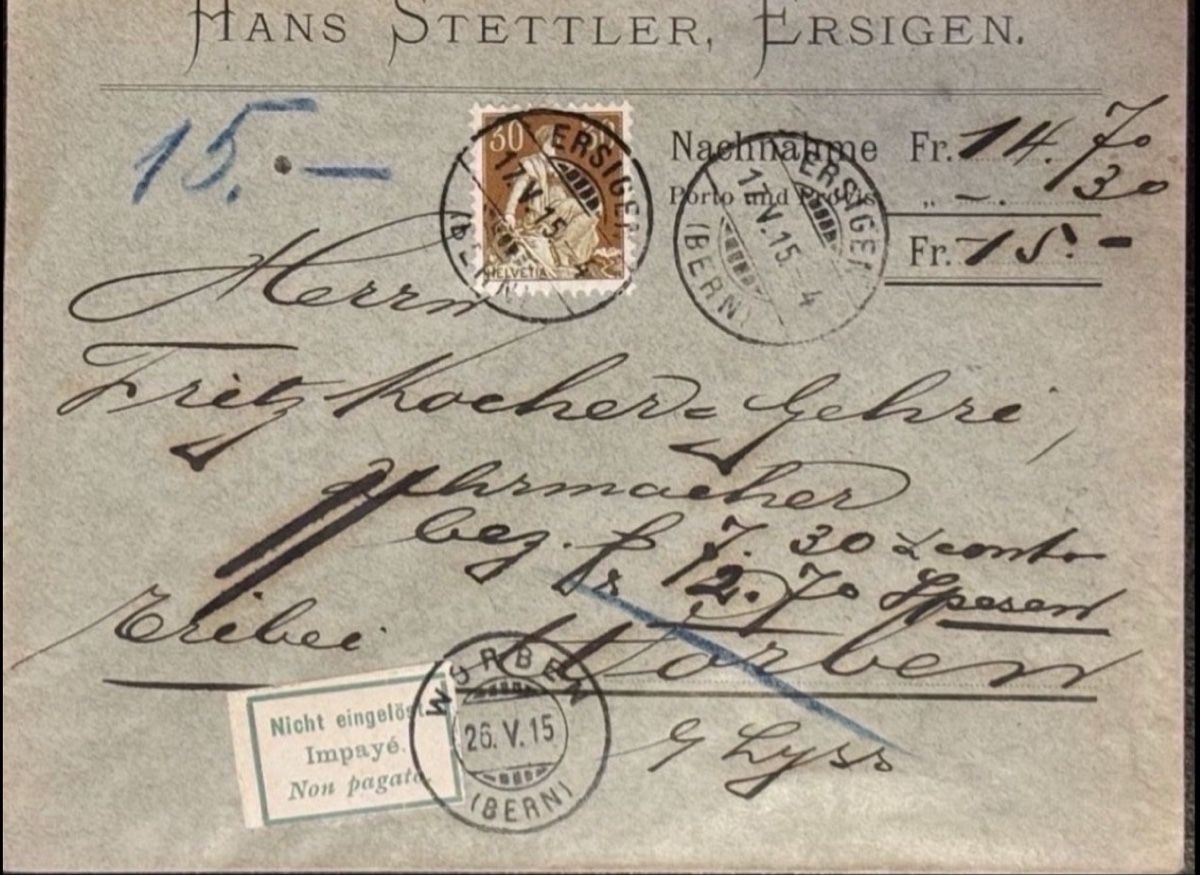 HANS STETTLER, ERSIGEN.
15.-
30 30
HELVETIA
ERSIGEN
17.V.15
(BERN)
ERSIGEN
17.V.15. 4
(BERN)
Nachnahme Fr. 14.70
Porto und Provis „ -.30
Fr. 15.-
Herrn
Fritz Kocher=Gehri,
Uhrmacher
bez. fr 7.30 conto
fr 2.70 Spesen
Worben
b/ Lyss
Nicht eingelöst
Impayé.
Non pagato.
WORBEN
26.V.15
(BERN)